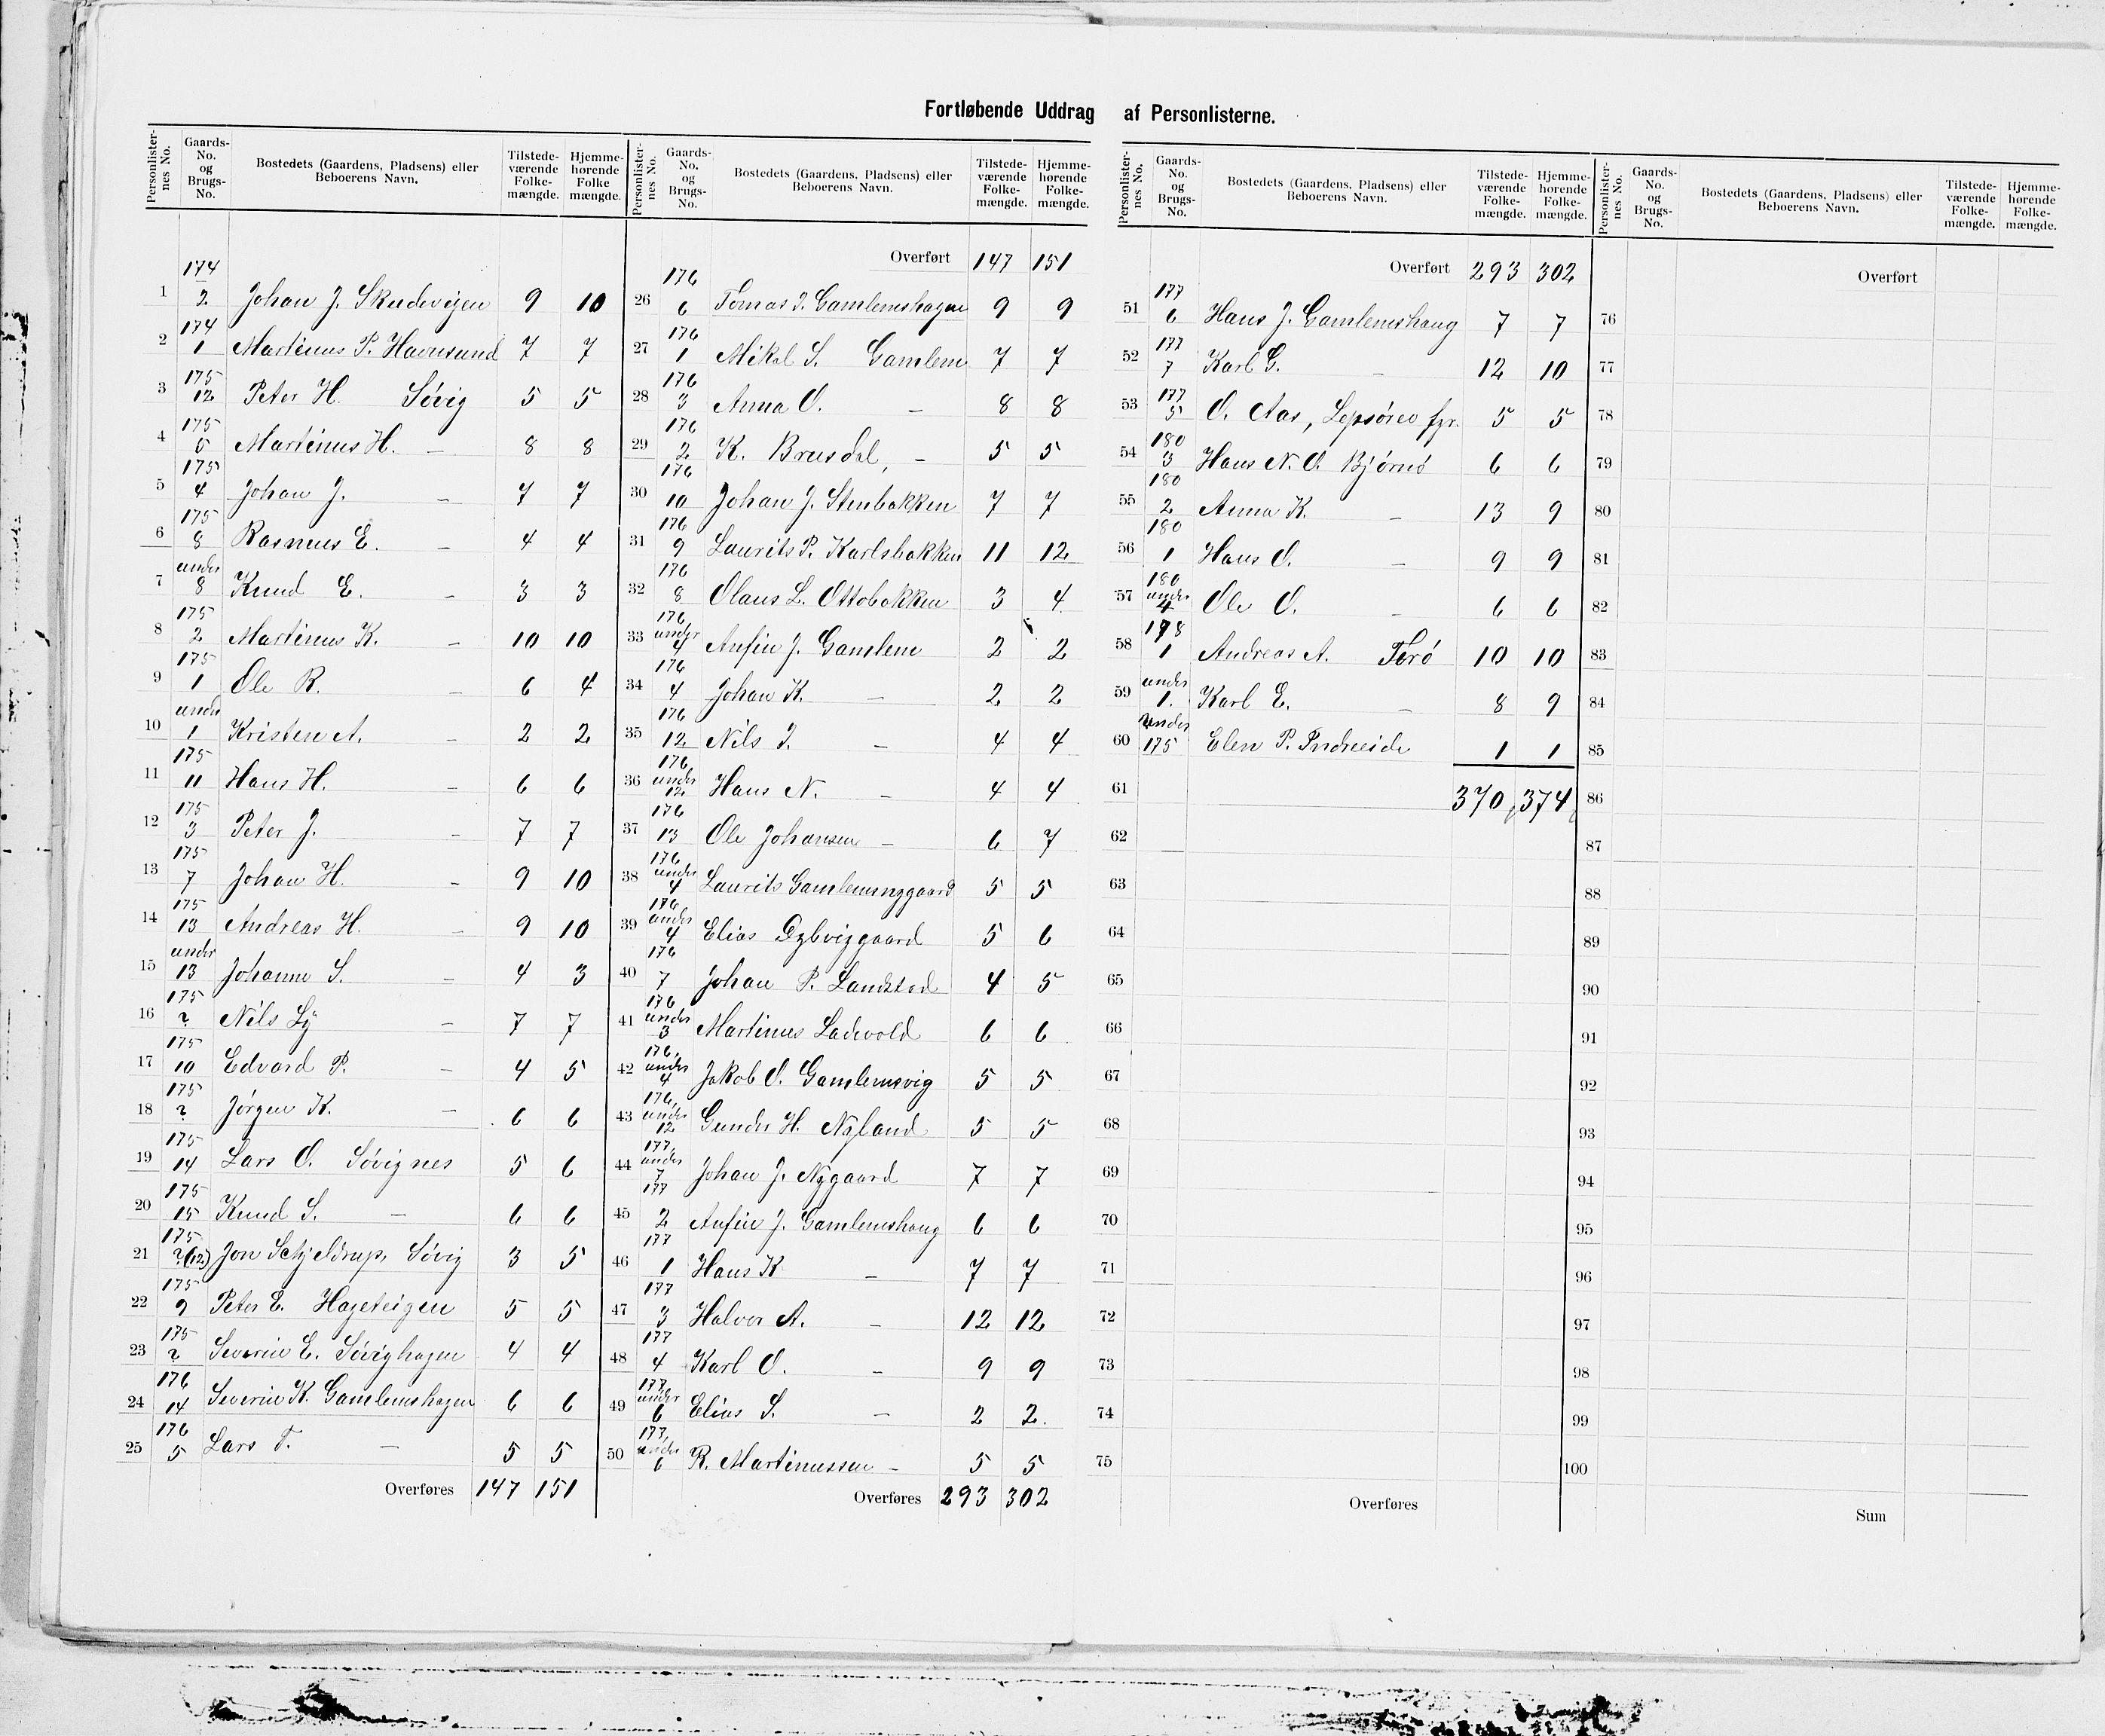 Fortløbende Uddrag af Personlisterne.
Personlister-nes No. Gaards-No. og Brugs-No. Bostedets (Gaardens, Pladsens) eller Beboerens Navn. Tilstede-værende Folke-mængde. Hjemme-hørende Folke mængde.
1 174 2 Johan J. Skudevigen 9 10
2 174 1 Martinus P. Havnsund 7 7
3 175 12 Peter H. Søvig 5 5
4 175 5 Martinus H. — 8 8
5 175 4 Johan J. — 7 7
6 175 8 Rasmus E. — 4 4
7 under 8 Knud E. — 3 3
8 175 2 Martinus K. — 10 10
9 175 1 Ole R. — 6 4
10 under 1 Kristen A. — 2 2
11 175 11 Hans H. — 6 6
12 175 3 Peter J. — 7 7
13 175 7 Johan H. — 9 10
14 175 13 Andreas H. — 9 10
15 under 13 Johanne S. — 4 3
16 175 ? Nils Ly — 7 7
17 175 10 Edvard P. — 4 5
18 175 ? Jørgen K. — 6 6
19 175 14 Lars O. Søvignes 5 6
20 175 15 Knud S. — 6 6
21 175 ?(12) Jon Schjeldrup, Søvig 3 5
22 175 9 Peter E. Hageteigen 5 5
23 175 ? Severin E. Søvighagen 4 4
24 176 14 Severin K. Gamlemshagen 6 6
25 176 5 Lars T. — 5 5
Overføres 147 151
Personlister-nes No. Gaards-No. og Brugs-No. Bostedets (Gaardens, Pladsens) eller Beboerens Navn. Tilstede-værende Folke-mængde. Hjemme-hørende Folke-mængde.
Overført 147 151
26 176 6 Tomas I. Gamlemshagen 9 9
27 176 1 Mikal S. Gamlem 7 7
28 176 3 Anna O. — 8 8
29 176 2 K. Brusdal, — 5 5
30 176 10 Johan J. Stenbakken 7 7
31 176 9 Laurits P. Karlsbakken 11 12
32 176 8 Olaus L. Ottobakken 3 4
33 176 under 4 Anfin J. Gamlem 2 2
34 176 4 Johan K. — 2 2
35 176 12 Nils I. — 4 4
36 176, under 12 Hans N. — 4 4
37 176 13 Ole Johansen — 6 7
38 176 under 4 Laurits Gamlemnygaard 5 5
39 176 under 4 Elias Dybviggaard 5 6
40 176 7 Johan P. Landstad 4 5
41 176 under 3 Martinus Ladevold 6 6
42 176, under 4 Jakob O. Gamlemsvig 5 5
43 176, under 12 Gunder H. Nyland 5 5
44 177, under 7 Johan J. Nygaard 7 7
45 177 2 Anfin J. Gamlemshaug 6 6
46 177 1 Hans K — 7 7
47 177 3 Halvor A. — 12 12
48 177 4 Karl O. — 9 9
49 177, under 6 Elias S. — 2 2.
50 177, under 6 R. Martinussen — 5 5
Overføres 293 302
Personlister-nes No. Gaards-No. og Brugs-No. Bostedets (Gaardens, Pladsens) eller Beboerens Navn. Tilstede-værende Folke-mængde. Hjemme-hørende Folke-mængde.
Overført 293 302
51 177 6 Hans J. Gamlemshaug 7 7
52 177 7 Karl G. — 12 10
53 177 5 O. Aas, Lepsørev fyr. 5 5
54 180 3 Hans N. O. Bjørnø 6 6
55 180 2 Anna K. — 13 9
56 180 1 Hans O. — 9 9
57 180 under 4 Ole O. — 6 6
58 178 1 Andreas A. Terø 10 10
59 under 1. Karl E. — 8 9
60 under 175 Elen P. Indreeide 1 1
61 370 374
62
63
64
65
66
67
68
69
70
71
72
73
74
75
Overføres
Personlister-nes No. Gaards-No. og Brugs-No. Bostedets (Gaardens, Pladsens) eller Beboerens Navn. Tilstede-værende Folke-mængde. Hjemme-hørende Folke-mængde.
Overført
76
77
78
79
80
81
82
83
84
85
86
87
88
89
90
91
92
93
94
95
96
97
98
99
100
Sum